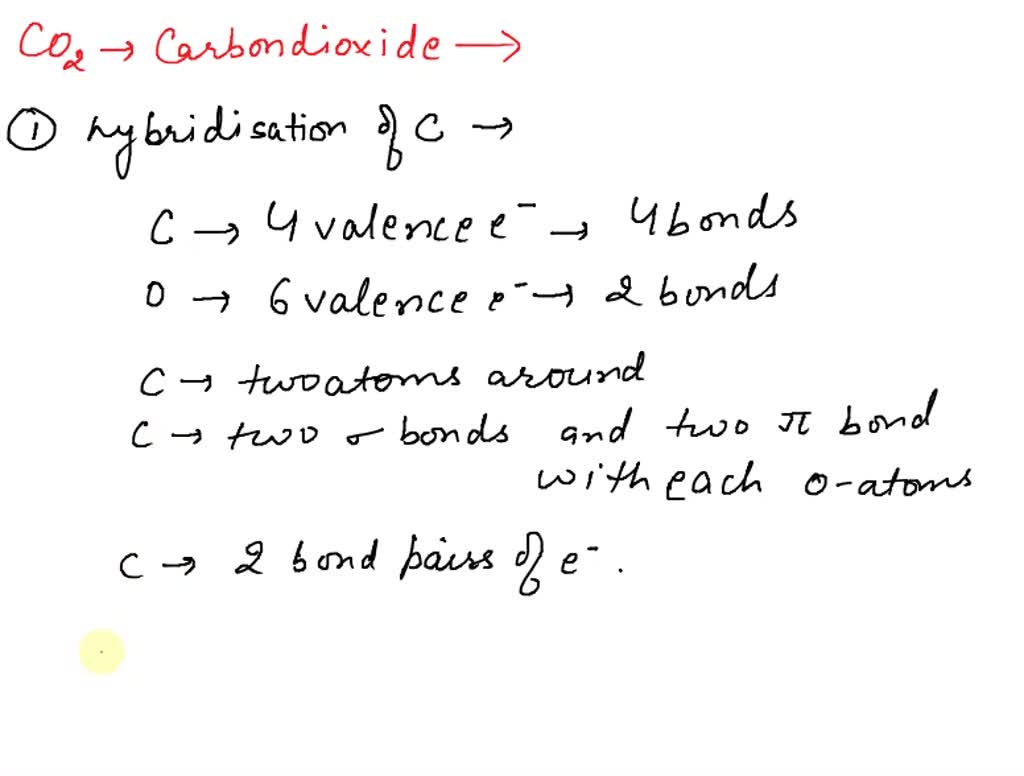 CO₂ → Carbondioxide →
① hybridisation of C →
C → 4 valence e⁻ → 4 bonds
O → 6 valence e⁻ → 2 bonds
C → two atoms around
C → two σ bonds and two π bond
with each O-atoms
C → 2 bond pairs of e⁻.